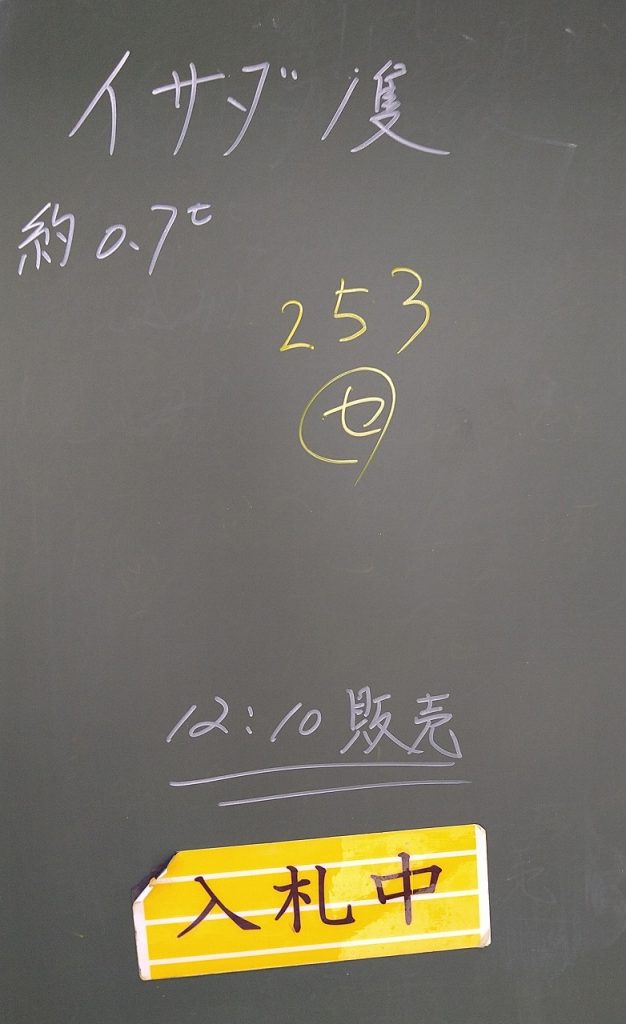 イサダ 1隻
約 0.7t
253
セ
12:10 販売
入札中